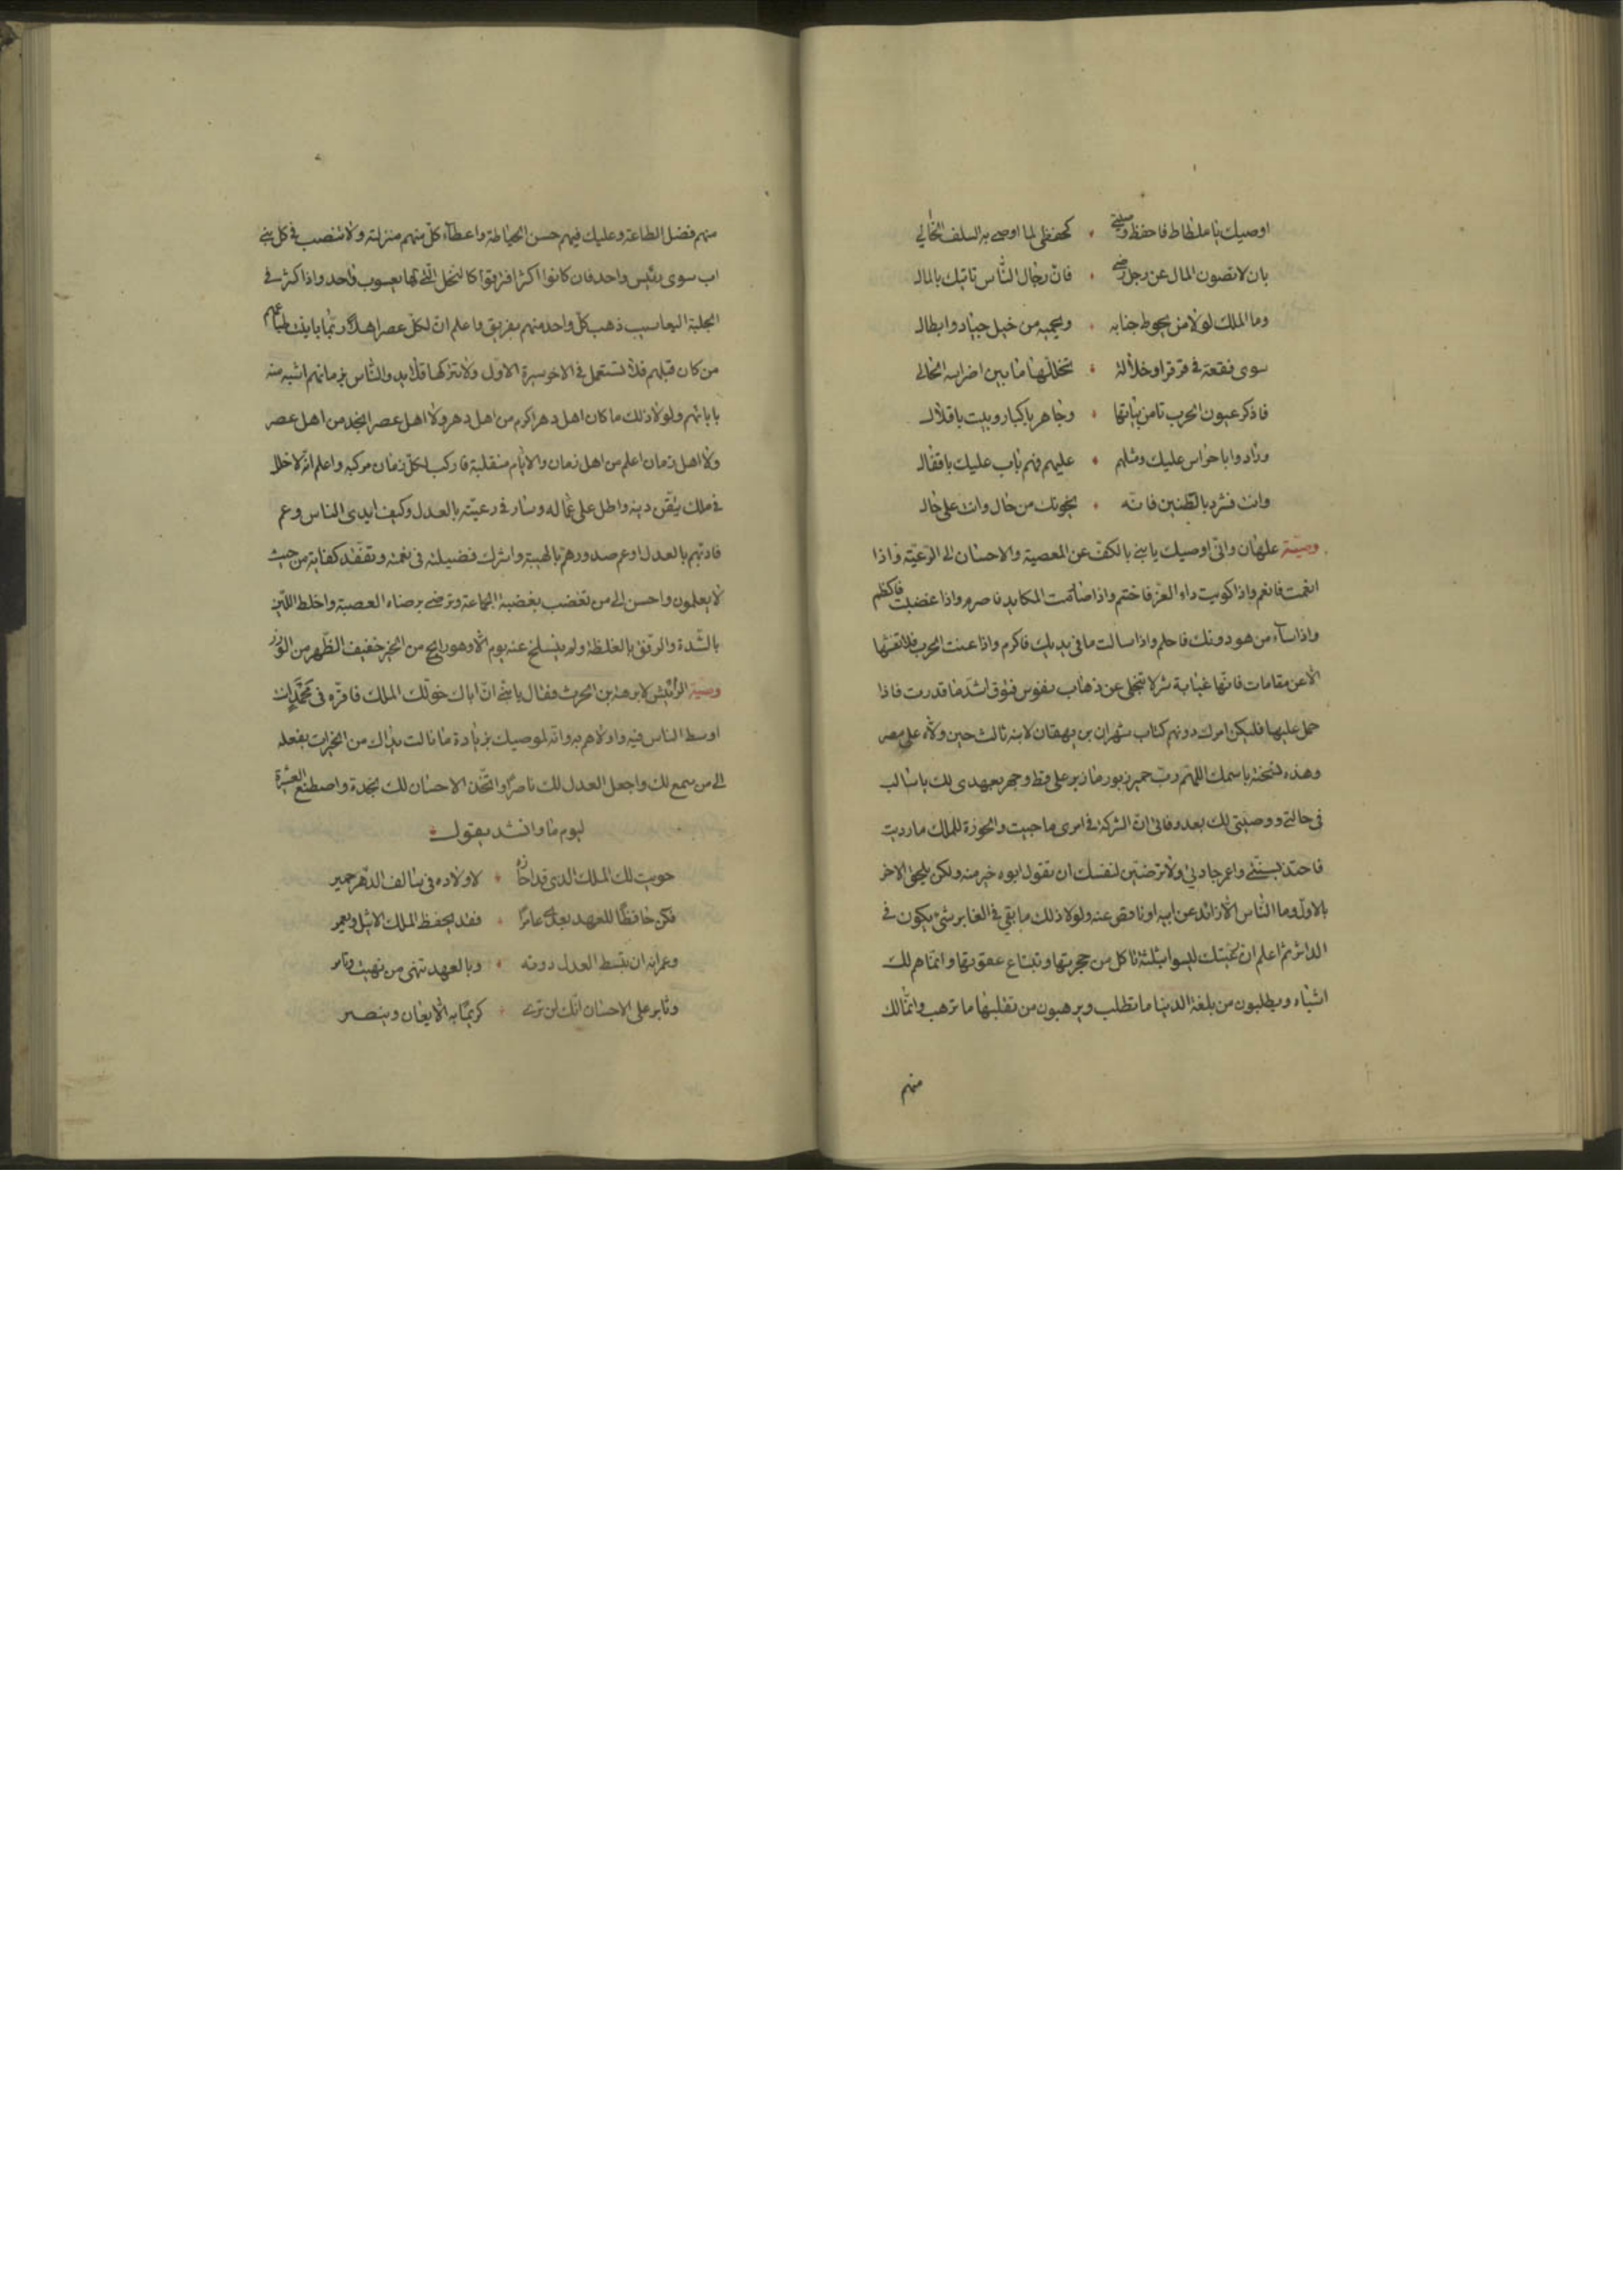 اوصيك يا ملطاط فاحفظ وصيتى • كحفظى لما اوصى به السلف الخالى
بان لا تصون المال عن رجل رضى • فان رجال الناس تاتيك بالمال
وما الملك لولا من يحوط جنابه • ويحميه من خيل جياد وابطال
سوى فقعة فى قرقر او خلالة • تخللها ما بين اضراسه الخالى
فاذكر عيون الحرب تامن بياتها • وجاهر باكبار وبيت باقلال
وزاد وابا حراس عليك ومثلهم • عليهم فهم باب عليك باقفال
وانت فشرد بالظنين فانه • يخونك من خال وانت على خال
وصية علهان وانى اوصيك يا بنى بالكف عن المعصية والاحسان الى الرعية واذا
انعمت فانعم واذا كويت داء العز فاختم واذا ضاقت المكايد فاصرم واذا غضبت فاكظم
واذا ساء من هو دونك فاحلم واذا سالت ما فى يديك فاكرم واذا عنت الحرب فلا تغشها
الا عن مقامات فانها غيابة شر لا تنجلى عن ذهاب نفوس فتوق اشد ما قدرت فاذا
حمل عليها فليكن امرك دونهم كتاب شهران بن بهقان لابنه ثالث حين ولاه على مصر
وهذه نسخته باسمك اللهم رب حمير زبور ما زبر على قط وحجر بعهدى لك يا ثالب
فى حالتى ووصيتى لك بعد وفاتى ان الشركة فى امرى ما حييت والحوزة للملك ما رديت
فاحتذ بسنتى واعرجادنى ولا ترضين لنفسك ان تقول ابوه خير منه ولكن يلحق الاخر
بالاول وما الناس الا زائد عن ابيه او ناقص عنه ولولا ذلك ما بقى فى الغابر شئ يكون فى
الداثر ثم اعلم ان رعيتك ليسوا بثلة تاكل من حجرتها وتبتاع عقوتها وانما هم لك
اشباه ويطلبون من بلغة الدنيا ما تطلب ويرهبون من تقلبها ما ترهب وانما لك
منهم
منهم فضل الطاعة وعليك فيهم حسن الحياطة واعطاء كل منهم منزلته ولا تنصب فى كل بنى
اب سوى رئيس واحد فان كانوا اكثر افترقوا كالنحل التى لها يعسوب واحد واذا كثر فى
الجلبة اليعاسيب ذهب كل واحد منهم بفريق واعلم ان لكل عصر اهلا وربما باينت طباعهم
من كان قبلهم فلا تستعمل فى الاخر سيرة الاول ولا تتركها قلا يد والناس بزمانهم اشبه منه
بابائهم ولولا ذلك ما كان اهل دهر اكرم من اهل دهر ولا اهل عصر انجد من اهل عصر
ولا اهل زمان اعلم من اهل زمان والايام منقلبة فاركب لكل زمان مركبه واعلم انه لا خلل
فى ملك يتقن دينه واطل على عماله وسار فى رعيته بالعدل وكيف ايدى الناس وعم
فادتهم بالعدل اوعر صدورهم بالهيبة واشرك فضيلته فى نعمته وتفقد كفايته من حيث
لا يعلمون واحسن الى من تغضب بغضبه الجماعة وترضى برضاه العصبة واخلط اللين
بالشدة والرفق بالغلظة ولم ينسلخ عنه يوم الا وهو رابح من الخير خفيف الظهر من الوزر
وصية الرائش لابرهة بن الحرث فقال يا بنى ان اباك خولك الملك فاقره فى
اوسط الناس فيه واولاهم به وانه لموصيك بزيادة ما نالت يداك من الخيرات بفعله
الى من سمع لك واجعل العدل لك ناصرا واتخذ الاحسان لك نجدة واصطنع العشيرة
ليوم ما وانشد يقول
حويت لك الملك الذى قد احازه • لاولاده فى سالف الدهر حمير
فكن حافظا للعهد بعدى عامرا • فقد يحفظ الملك الاثيل ويعمر
وعمرانه ان تبسط العدل دونه • وبالعهد تنهى من نهيت وتامر
وثابر على الاحسان انك لن ترى • كريما به الا يعان وينصر